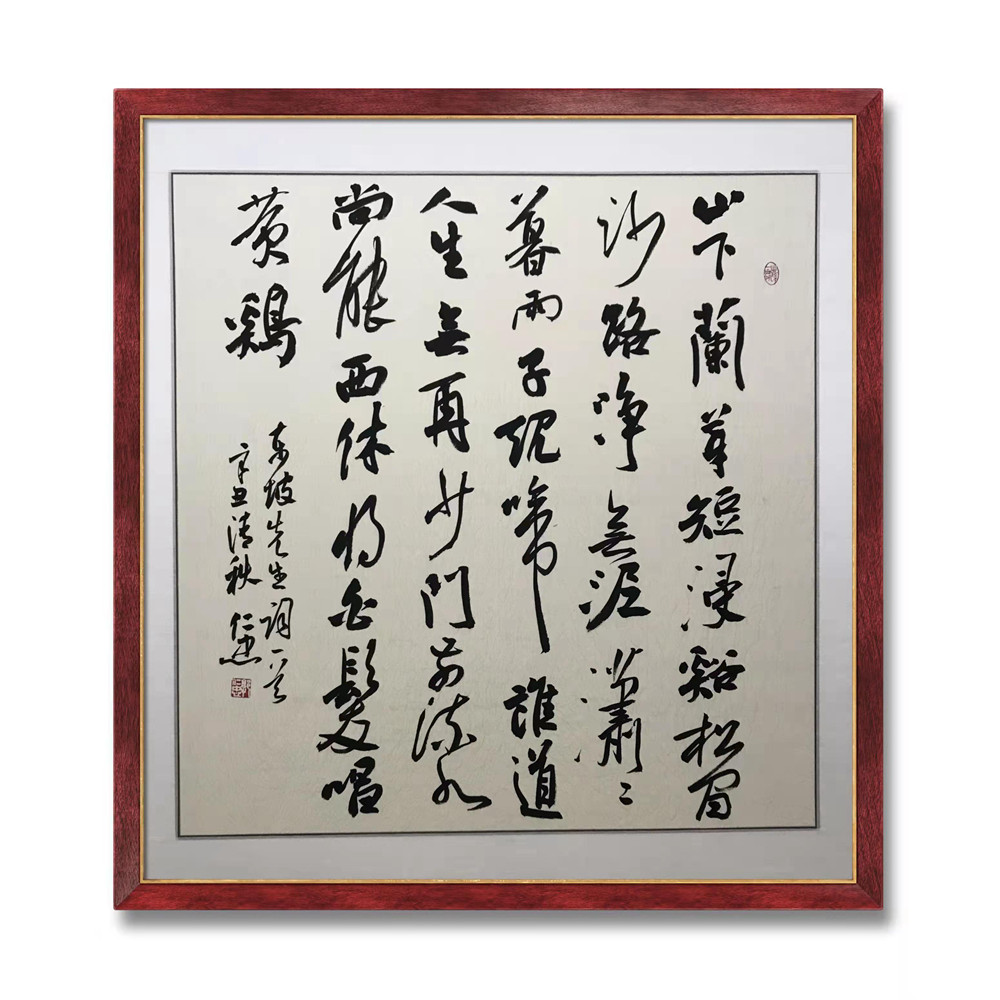 山下蘭芽短浸谿松間
沙路淨無泥瀟〻
暮雨子規啼誰道
人生無再少門前流水
尚能西休將白髮唱
黃鷄
東坡先生詞一首
辛丑清秋 仁